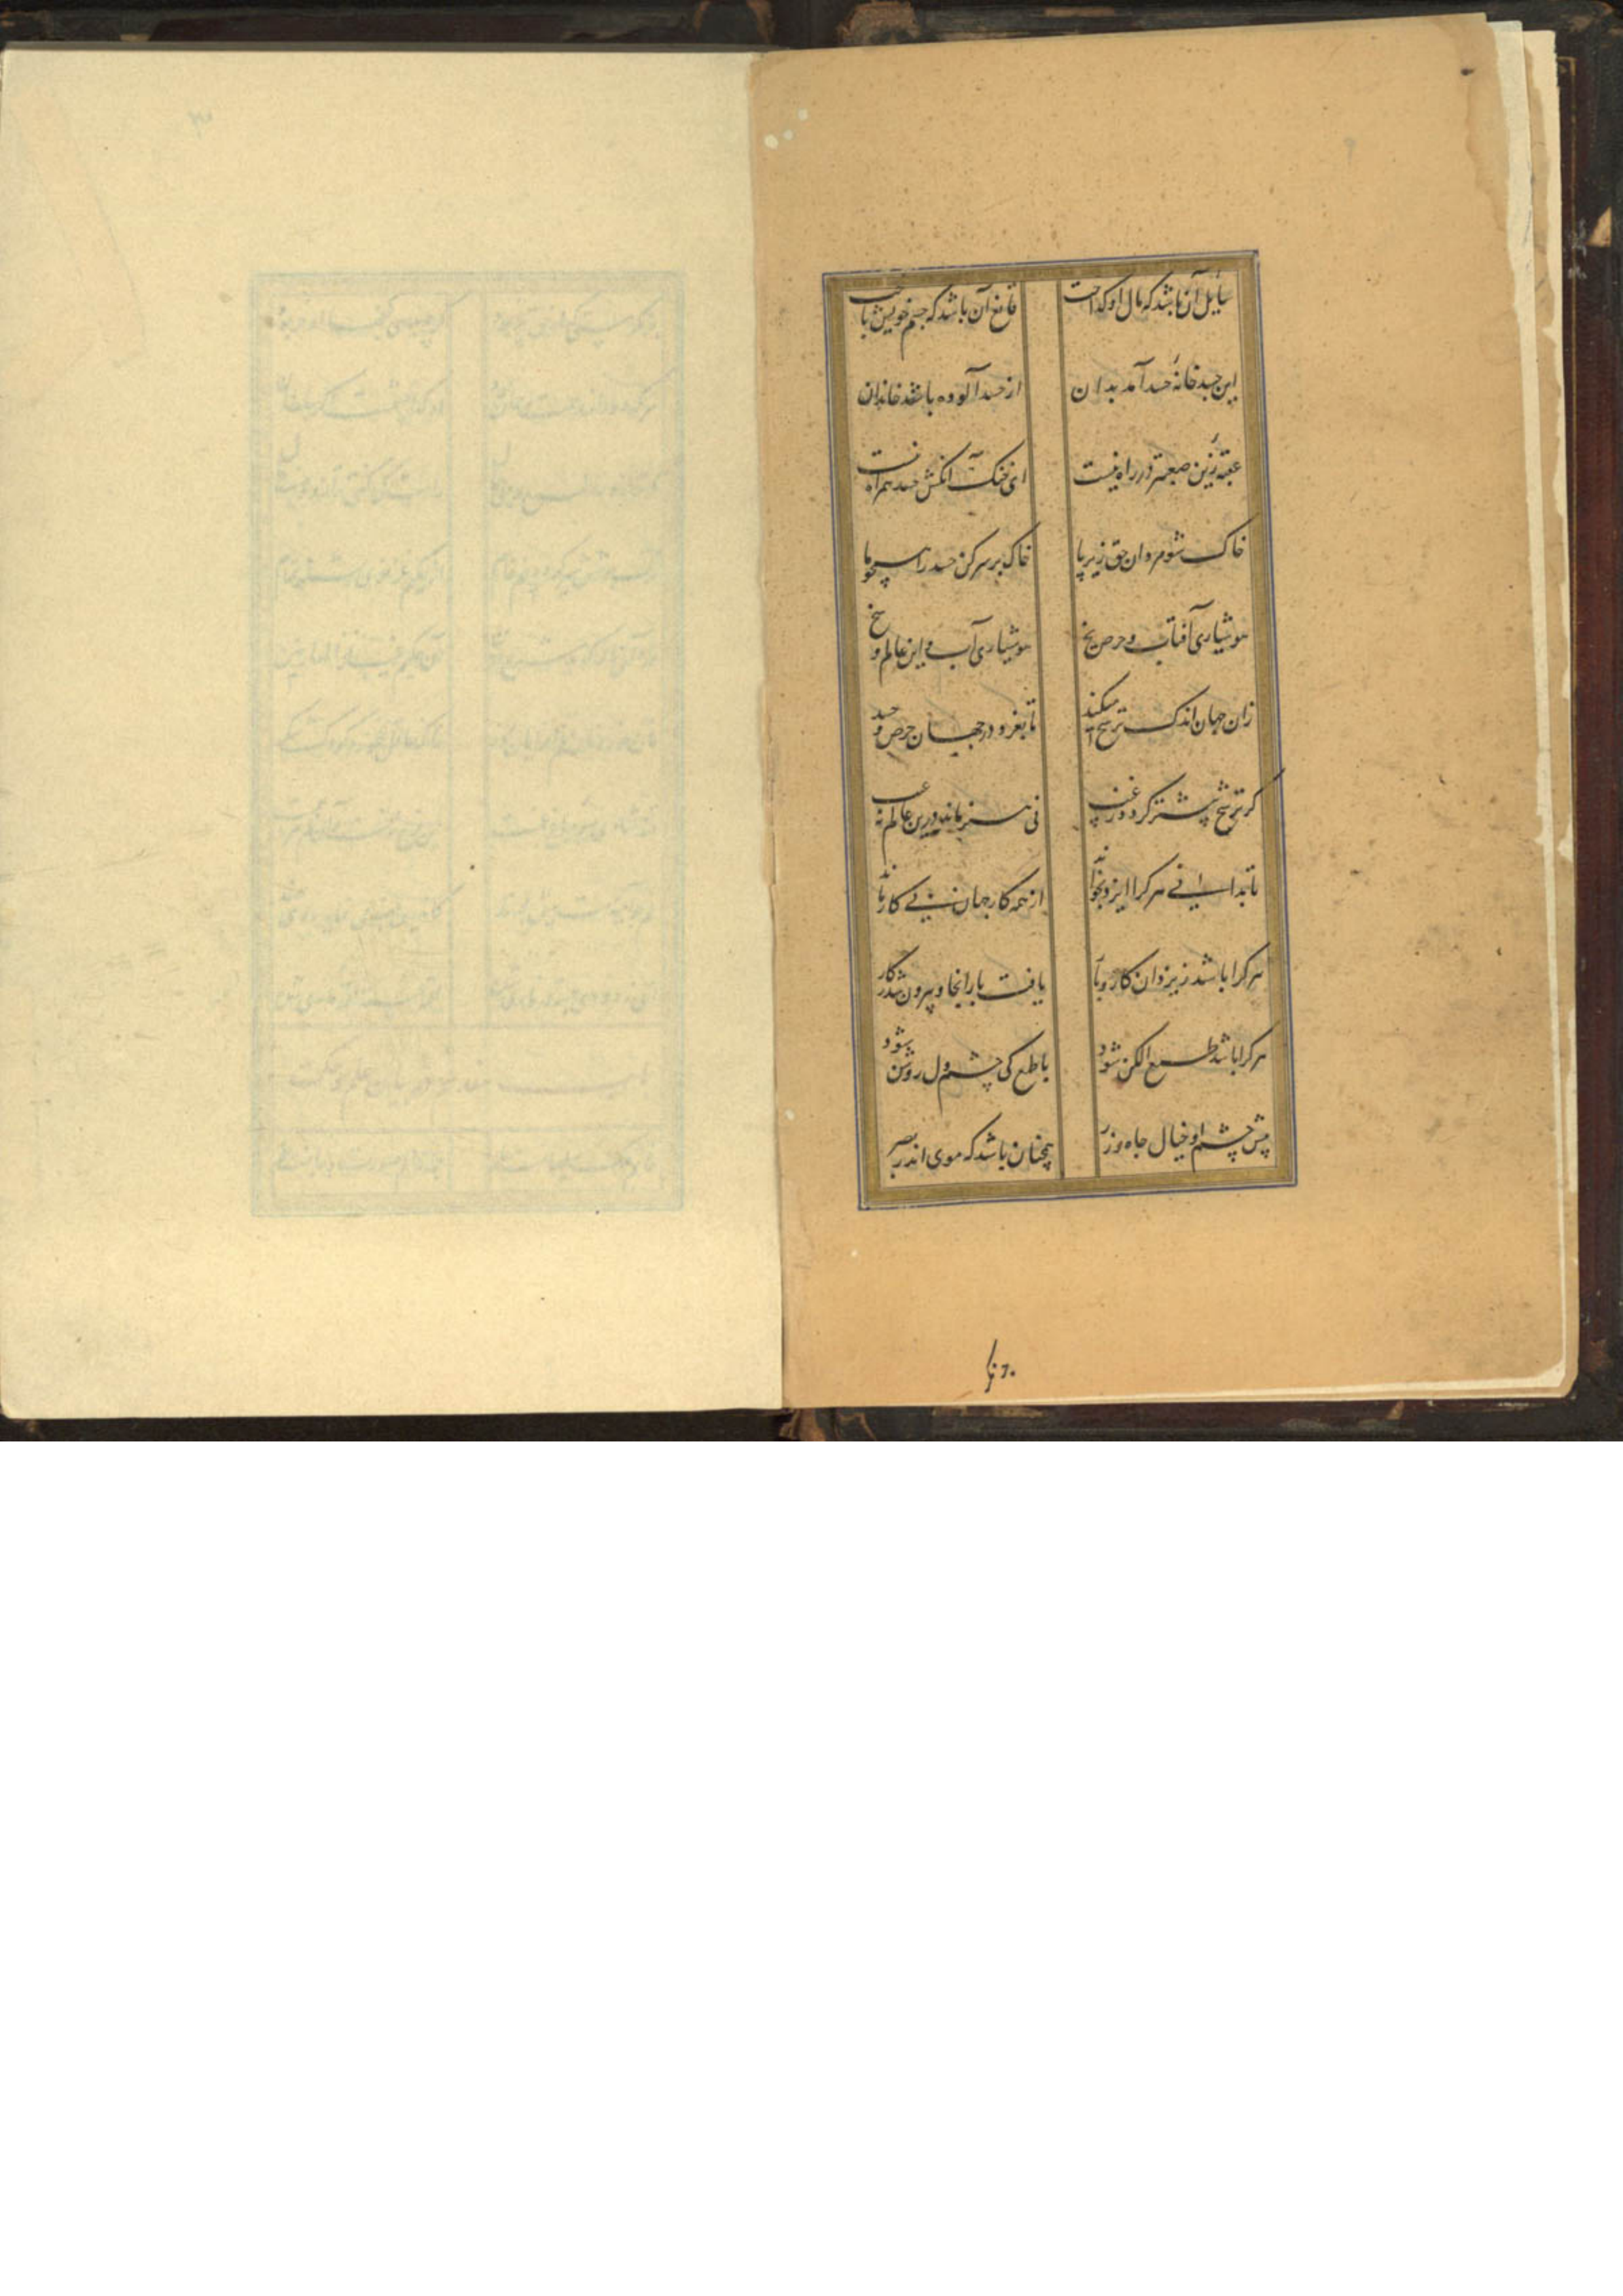 سایل آن باشد که مال او گداخت قانع آن باشد که جسم خویش باخت
این جسد خانهٔ حسد آمد بدان از حسد آلوده باشد خاندان
عقبهٔ زین صعبتر در راه نیست ای خنک آنکش حسد همراه نیست
خاک شو مردان حق زیر پا خاک بر سر کن حسد را همچو ما
هوشیاری آفتاب و حرص یخ هوشیاری آب و این عالم وسخ
زان جهان اندک ترشح میکند تا نغرد در جهان حرص و حسد
کر ترشح پیشتر گردد ز غیب نی هنر ماند درین عالم نه عیب
تا بدانی هر کرا ایزد بخواند از همه کار جهان بی کار ماند
هر کرا باشد ز یزدان کار و بار یافت بار آنجا و بیرون شد ز کار
هر کرا باشد طمع الکن شود با طمع کی چشم و دل روشن شود
پیش چشم او خیال جاه و زر همچنان باشد که موی اندر بصر